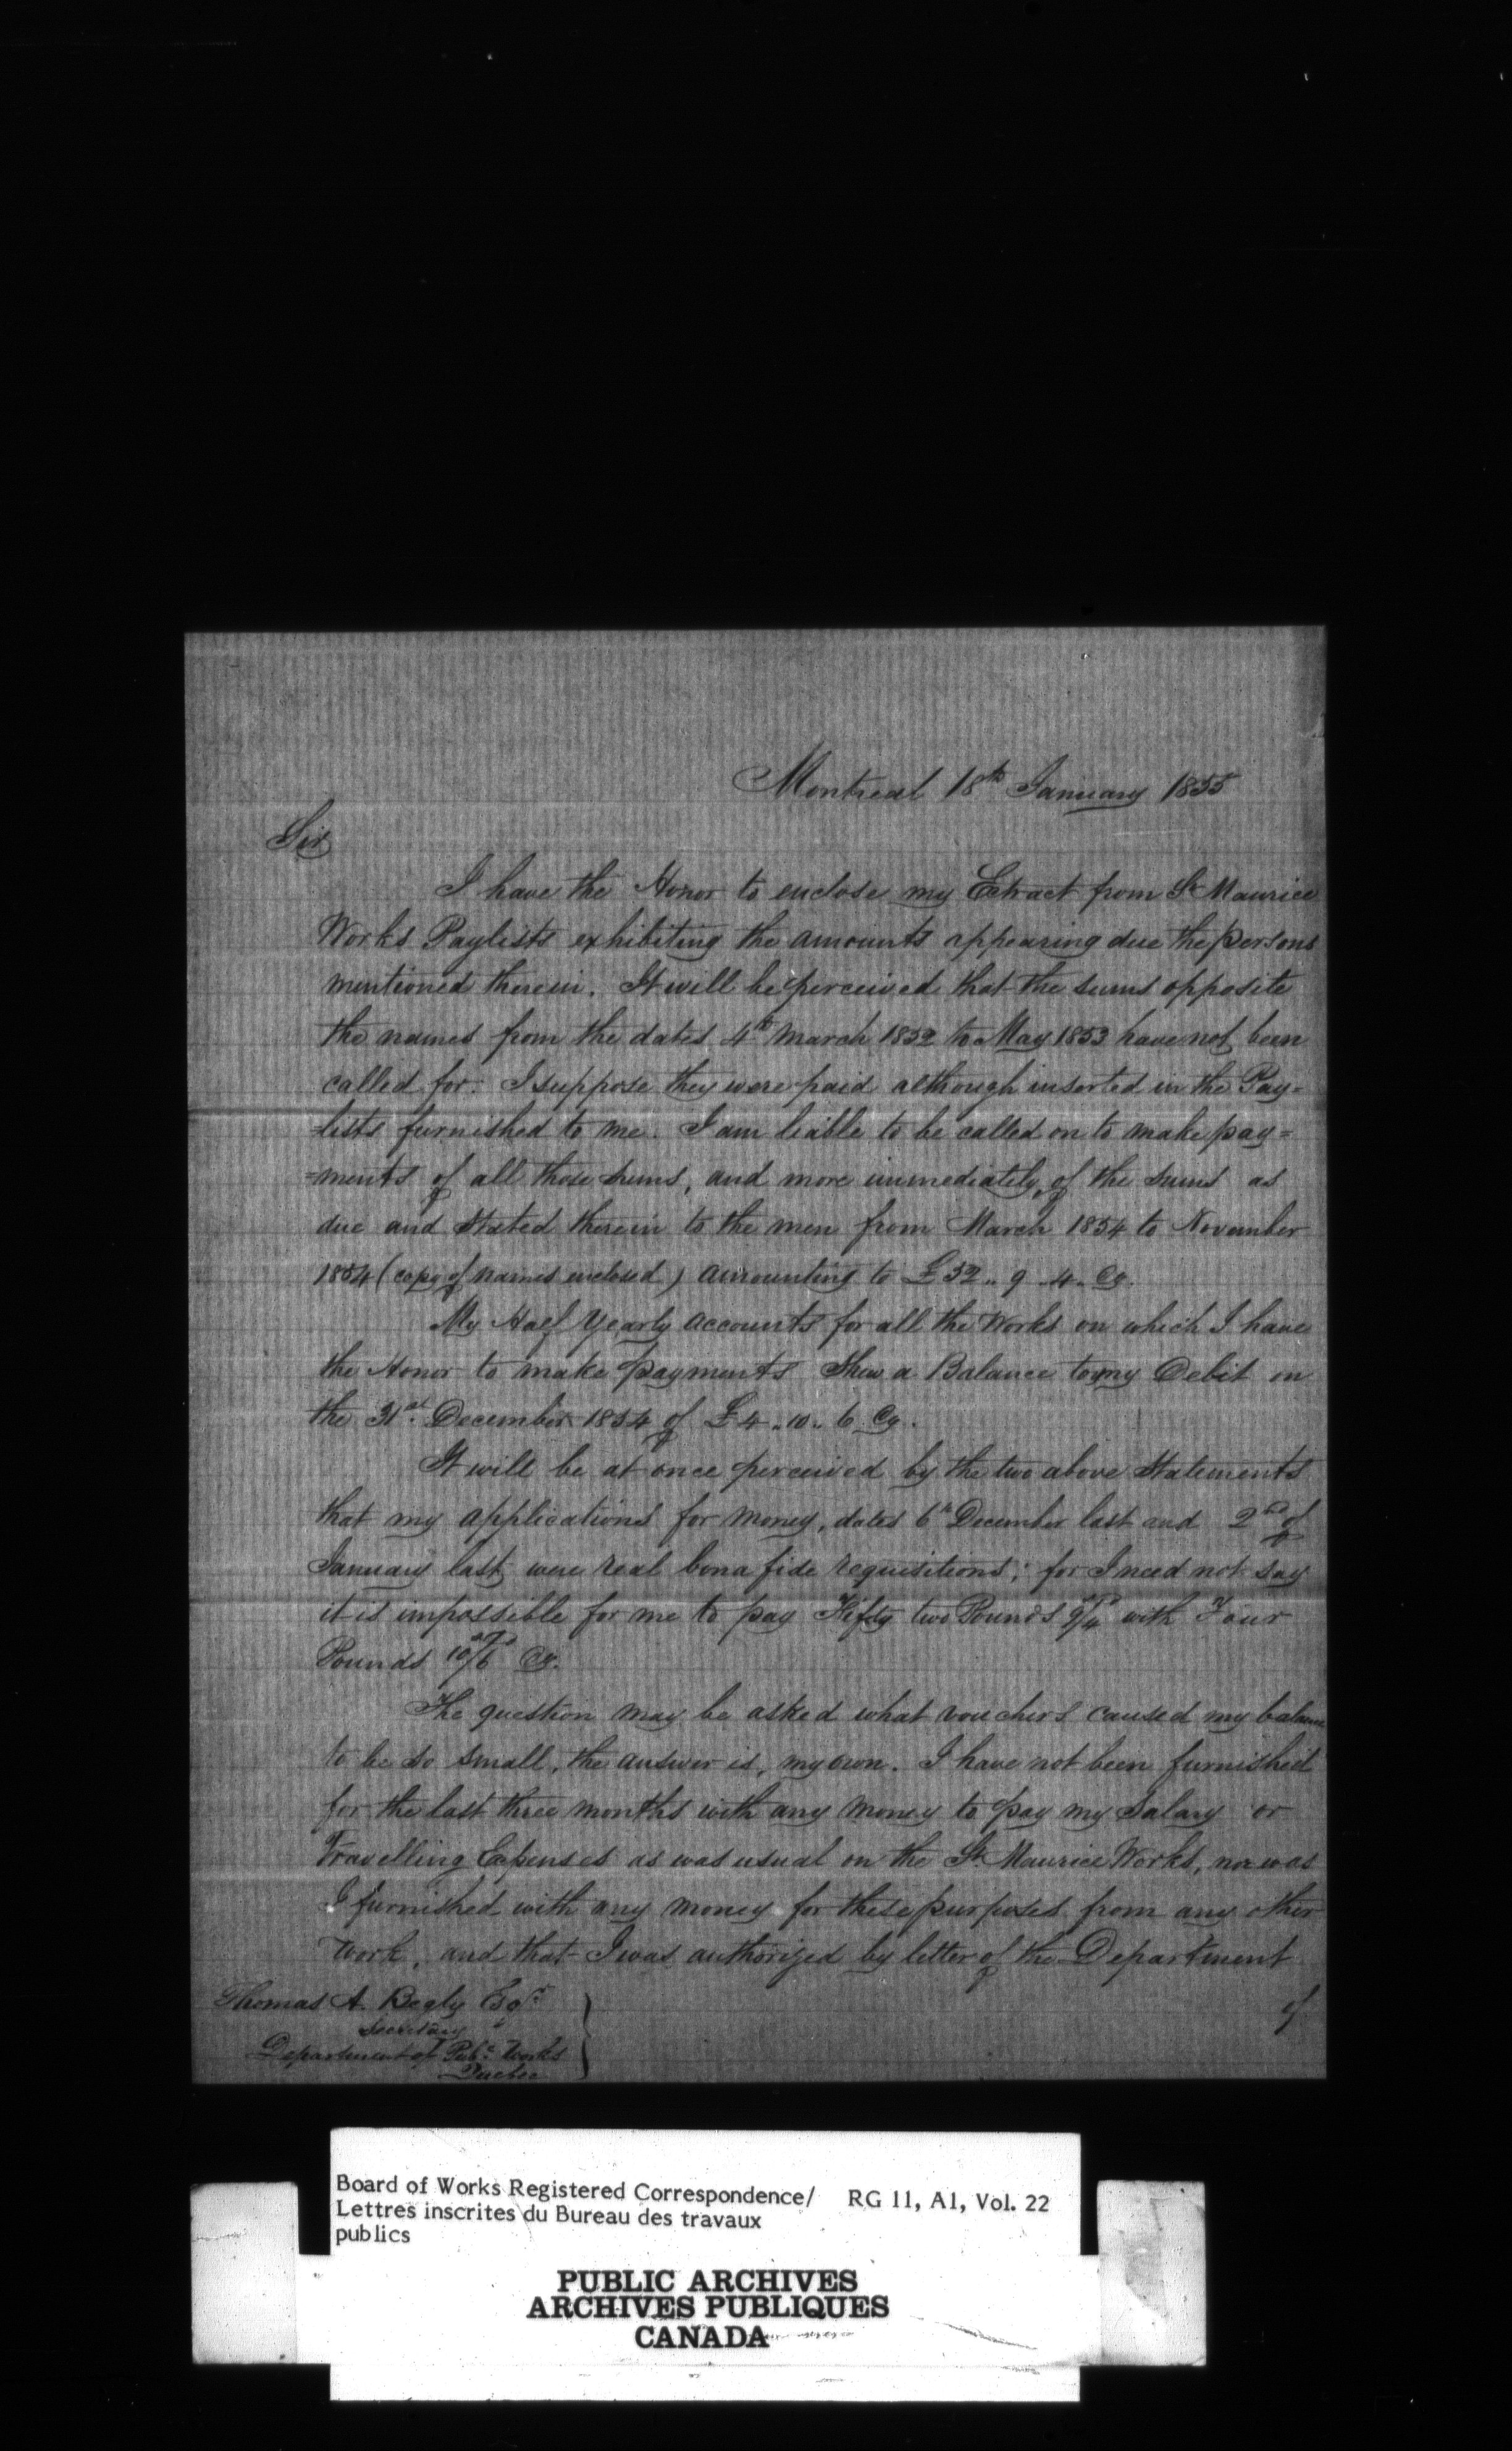 Montreal 18th January 1855
Sir
I have the Honor to enclose my Extract from St Maurice
Works Paylists exhibiting the amounts appearing due the persons
mentioned therein. It will be perceived that the sums opposite
the names from the dates 4th March 1852 to May 1853 have not been
called for. I suppose they were paid although inserted in the Pay=
=lists furnished to me. I am liable to be called on to make pay=
=ments of all those sums, and more immediately, of the sums as
due and stated therein to the men from March 1854 to November
1854 (copy of names enclosed) amounting to £52.. 9..4.. Cy.
My Half Yearly accounts for all the Works on which I have
the Honor to make payments Shew a Balance to my Debit on
the 31st December 1854 of £4..10..6 Cy.
It will be at once perceived by the two above Statements
that my applications for money, dates 6th December last and 2nd of
January last, were real bona fide requisitions; for I need not say
it is impossible for me to pay Fifty two Pounds 9/4 with Four
Pounds 10/6 Cy.
The question may be asked what vouchers caused my balance
to be so small, the answer is, my own. I have not been furnished
for the last three months with any money to pay my Salary or
Travelling Expenses as was usual on the St Maurice Works, nor was
I furnished with any money for these purposes from any other
Work, and that I was authorized by letter of the Department
of
Thomas A. Begly Esqr
Secretary
Department of Pubc Works
Quebec
Board of Works Registered Correspondence/ RG 11, A1, Vol. 22
Lettres inscrites du Bureau des travaux
publics
PUBLIC ARCHIVES
ARCHIVES PUBLIQUES
CANADA